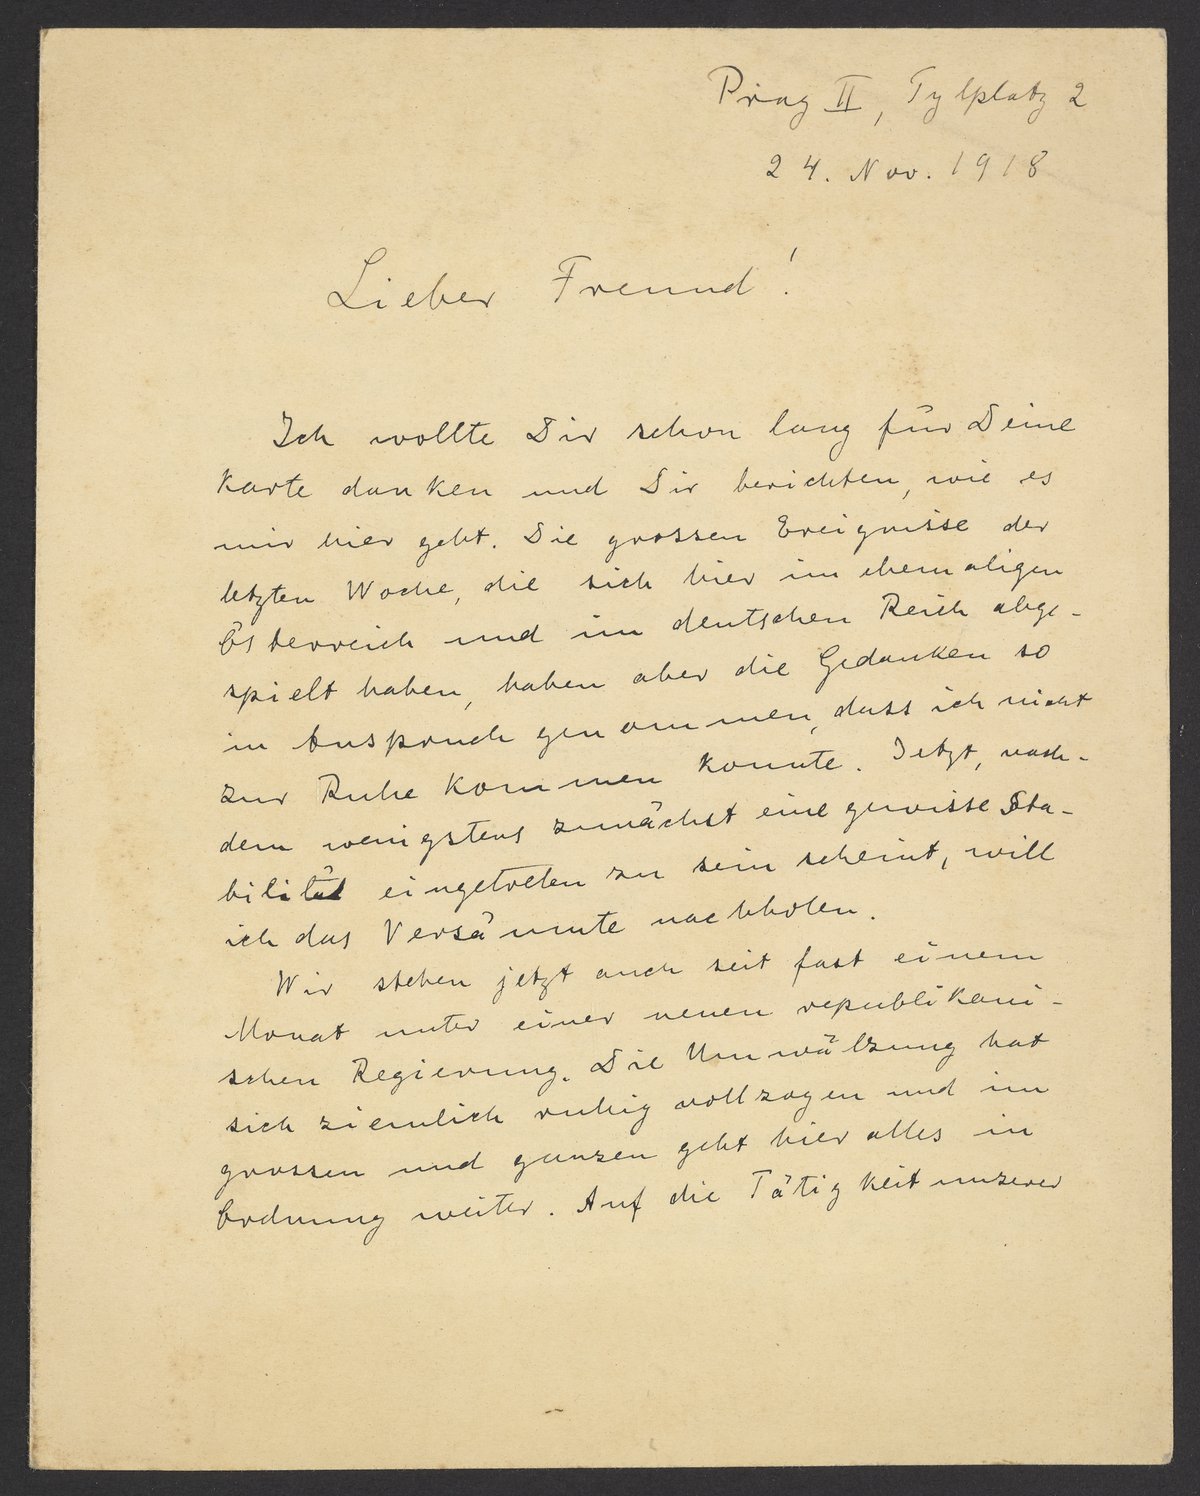 Prag II, Tylplatz 2
24. Nov. 1918
Lieber Freund!
Ich wollte Dir schon lang für Deine
Karte danken und Dir berichten, wie es
mir hier geht. Die grossen Ereignisse der
letzten Woche, die sich hier im ehemaligen
Österreich und im deutschen Reich abge-
spielt haben, haben aber die Gedanken so
in Anspruch genommen, dass ich nicht
zur Ruhe kommen konnte. Jetzt, nach-
dem wenigstens zunächst eine gewisse Sta-
bilität eingetreten zu sein scheint, will
ich das Versäumte nachholen.
Wir stehen jetzt auch seit fast einem
Monat unter einer neuen republikani-
schen Regierung. Die Umwälzung hat
sich ziemlich ruhig vollzogen und im
grossen und ganzen geht hier alles in
Ordnung weiter. Auf die Tätigkeit unserer